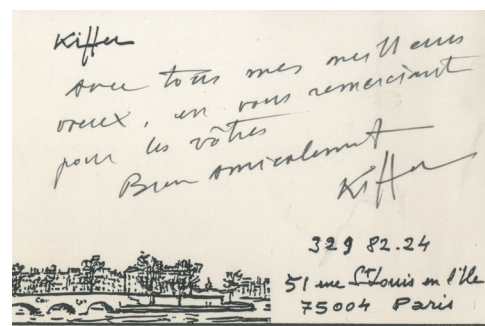 Kiffer
avec tous mes meilleurs
voeux, en vous remerciant
pour les vôtres
Bien amicalement
Kiffer
329 82.24
51 rue St Louis en l'Ile
75004 Paris